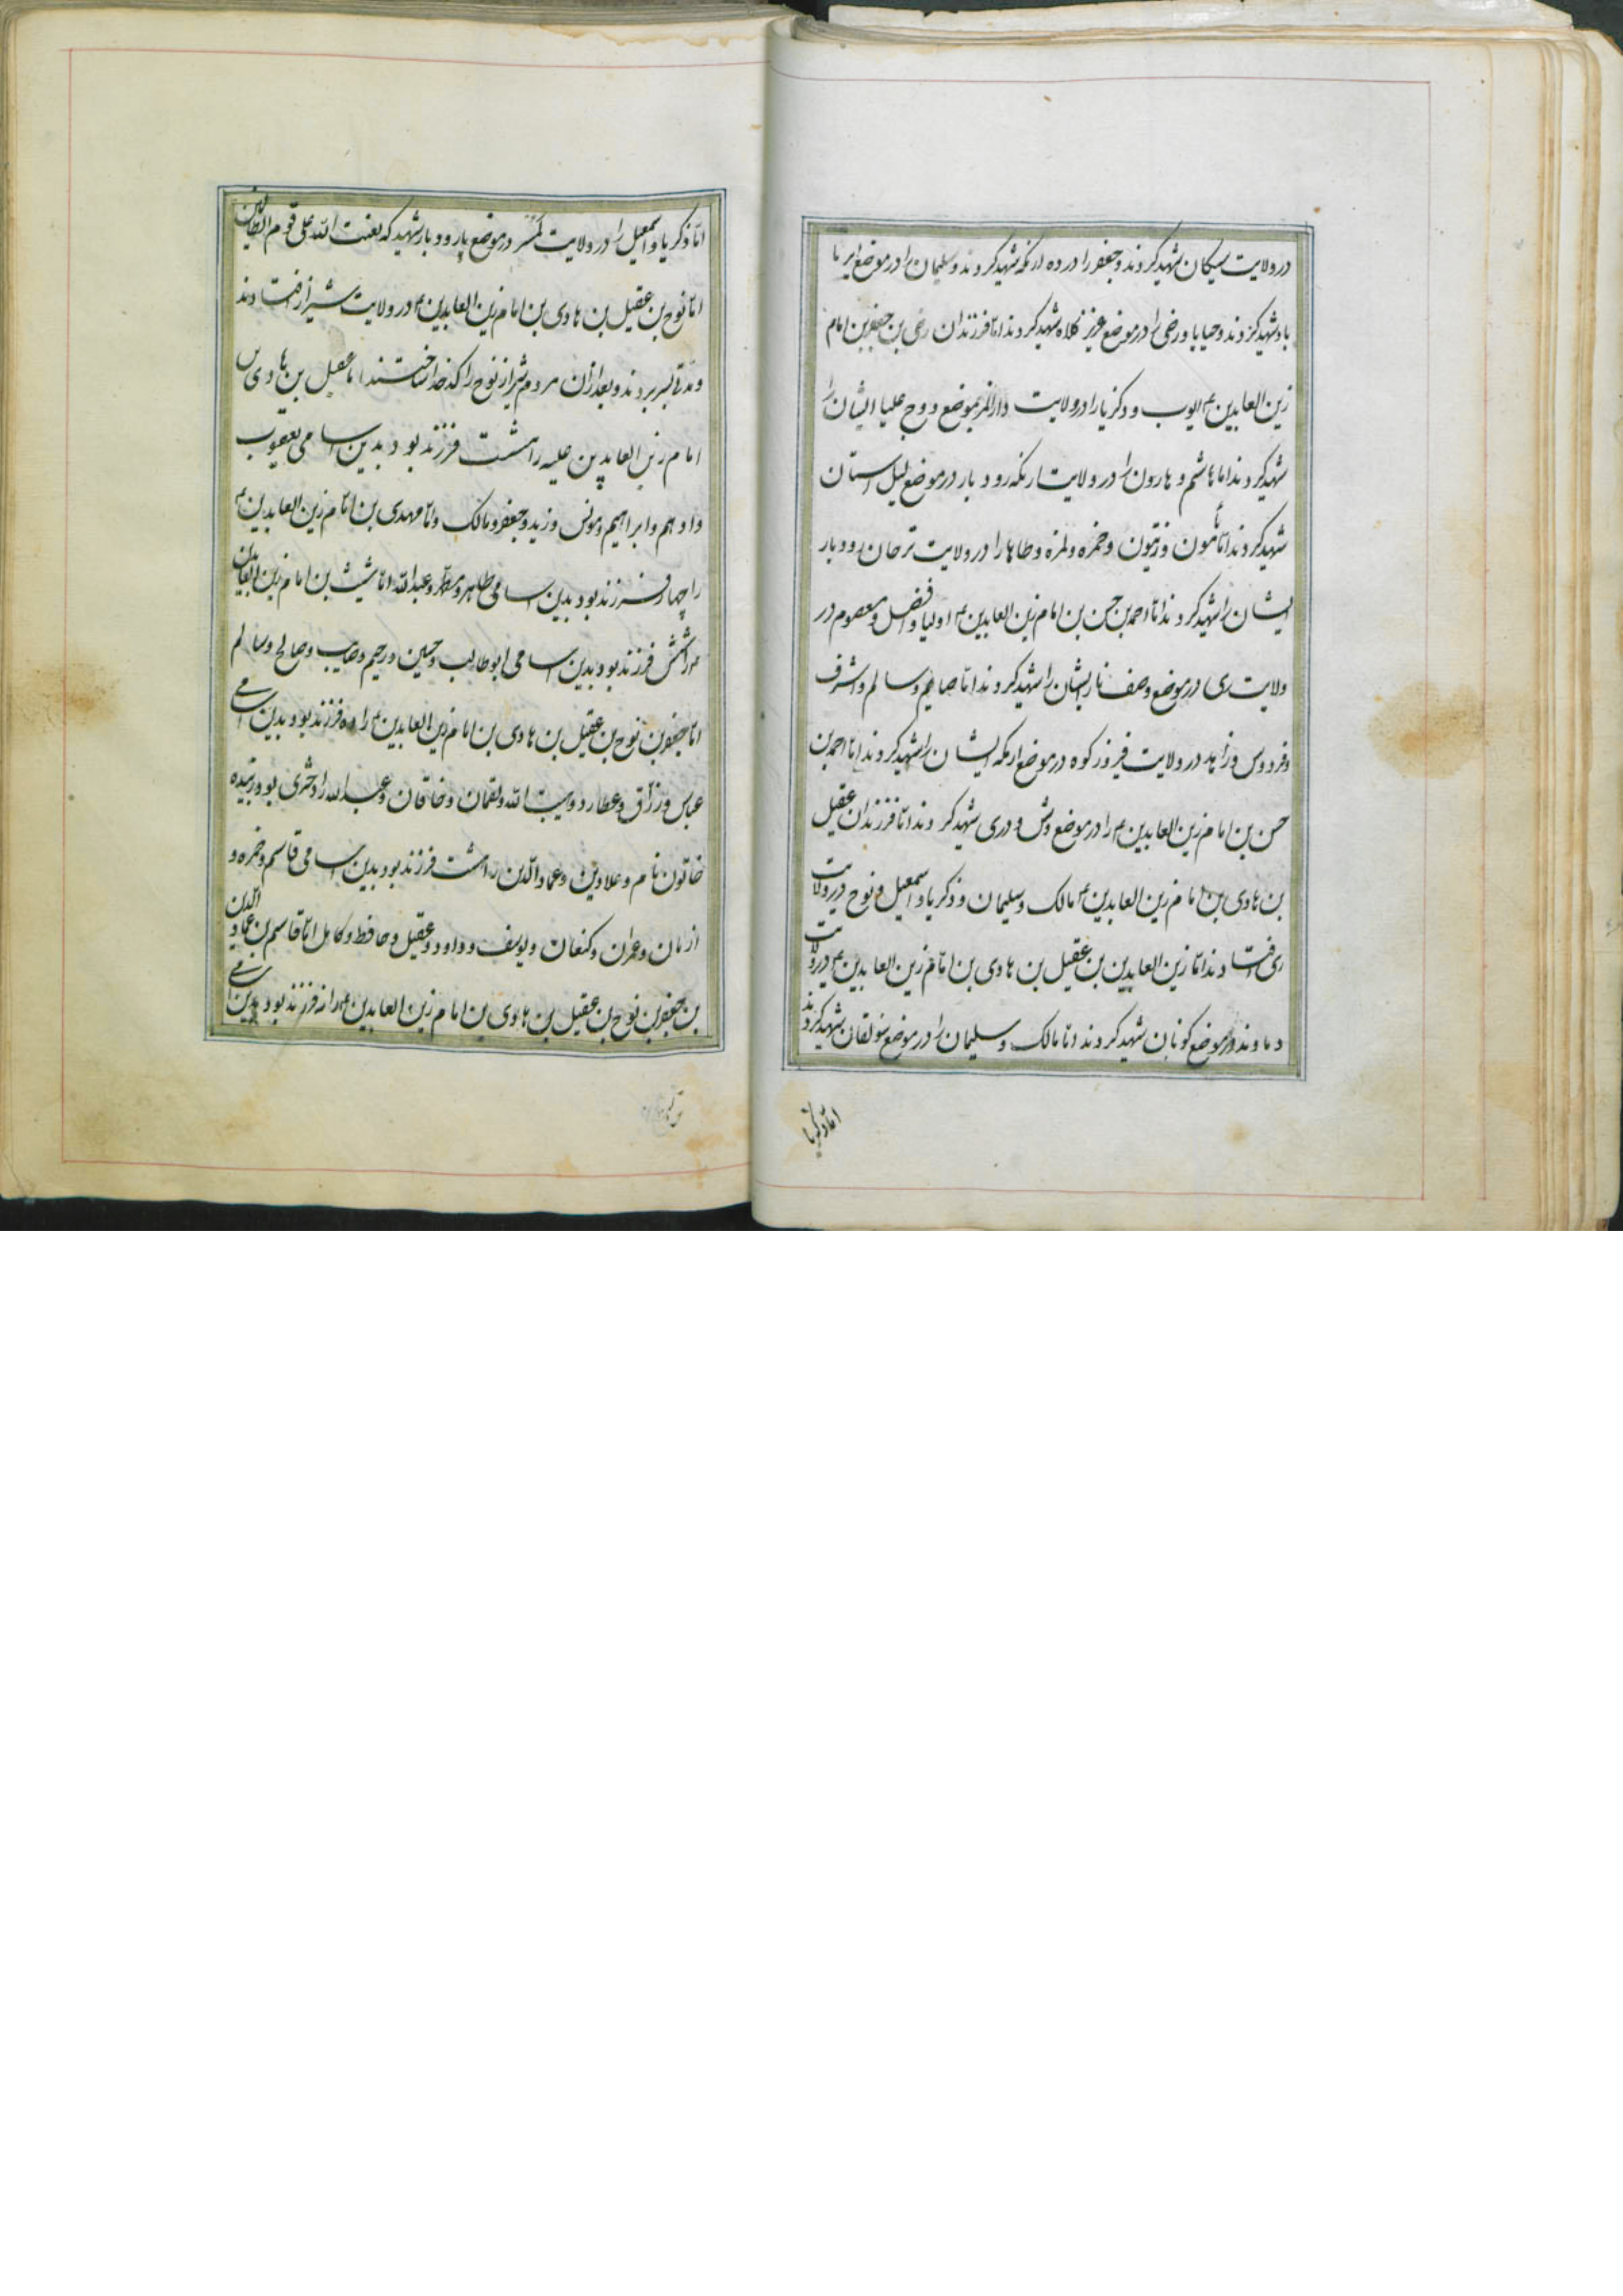 در ولایت سیکان شهید کردند و جعفر را در ده ارنکه شهید کردند و سلیمان را در موضع ایر با
باد شهید کردند و حیابا و رضی را در موضع عزیز کلاه شهید کردند اما فرزندان رضی بن جعفر بن امام
زین العابدین ع ایوب و ذکریا را در ولایت دارالمرز بموضع دوج علیا ایشان را
شهید کردند اما هاشم و هارون را در ولایت ارنکه رودبار در موضع لیل استان
شهید کردند اما مأمون و زیتون و حمزه و لمزه و طاها را در ولایت ترخان رودبار
ایشان را شهید کردند اما احمد بن حسن بن امام زین العابدین ع اولیا و افضل و معصوم در
ولایت ری در موضع وصف نار ایشان را شهید کردند اما صایم و سالم و اشرف
و فردوس و زاهد در ولایت فیروزکوه در موضع ارمکه ایشان را شهید کردند اما احمد بن
حسن بن امام زین العابدین ع را در موضع وش و دری شهید کردند اما فرزندان عقیل
بن هادی بن امام زین العابدین ع مالک و سلیمان و ذکریا و اسمعیل و نوح در ولایت
ری افتادند اما زین العابدین بن عقیل بن هادی بن امام زین العابدین ع در ولایت
دماوند در موضع کونان شهید کردند اما مالک و سلیمان را در موضع سولقان شهید کردند
اما ذکریا
اما ذکریا و اسمعیل را در ولایت در موضع پارودبار شهید که لعنت الله علی قوم الظالمین
اما نوح بن عقیل بن هادی بن امام زین العابدین ع در ولایت شیراز افتادند
و مدتی بسر بردند و بعد از ان مردم شیراز نوح را کدخدا ساختند اما عقیل بن هادی بن
امام زین العابدین علیه را هشت فرزند بود بدین اسامی یعقوب
و ادهم و ابراهیم و مونس و زید و جعفر و مالک و اما مهدی بن امام زین العابدین ع
را چهار فرزند بود بدین اسامی طاهر و مطهر و عبدالله اما شیث بن امام زین العابدین
را شش فرزند بود بدین اسامی ابوطالب و حسین و رحیم و صاحب و صالح و سالم
اما جعفر بن نوح بن عقیل بن هادی بن امام زین العابدین ع را ده فرزند بود بدین اسامی
عباس و رزاق و عطارد و هیبت الله و لقمان و خاقان و عبدالله را دختری بود رشیده
خاتون نام و علاوین و عمادالدین را هشت فرزند بود بدین اسامی قاسم و حمزه و
ازمان و عمران و کنعان و یوسف و داود و عقیل و حافظ و کامل اما قاسم بن عمادالدین
بن جعفر بن نوح بن عقیل بن هادی بن امام زین العابدین ع را نه فرزند بود بدین اسامی